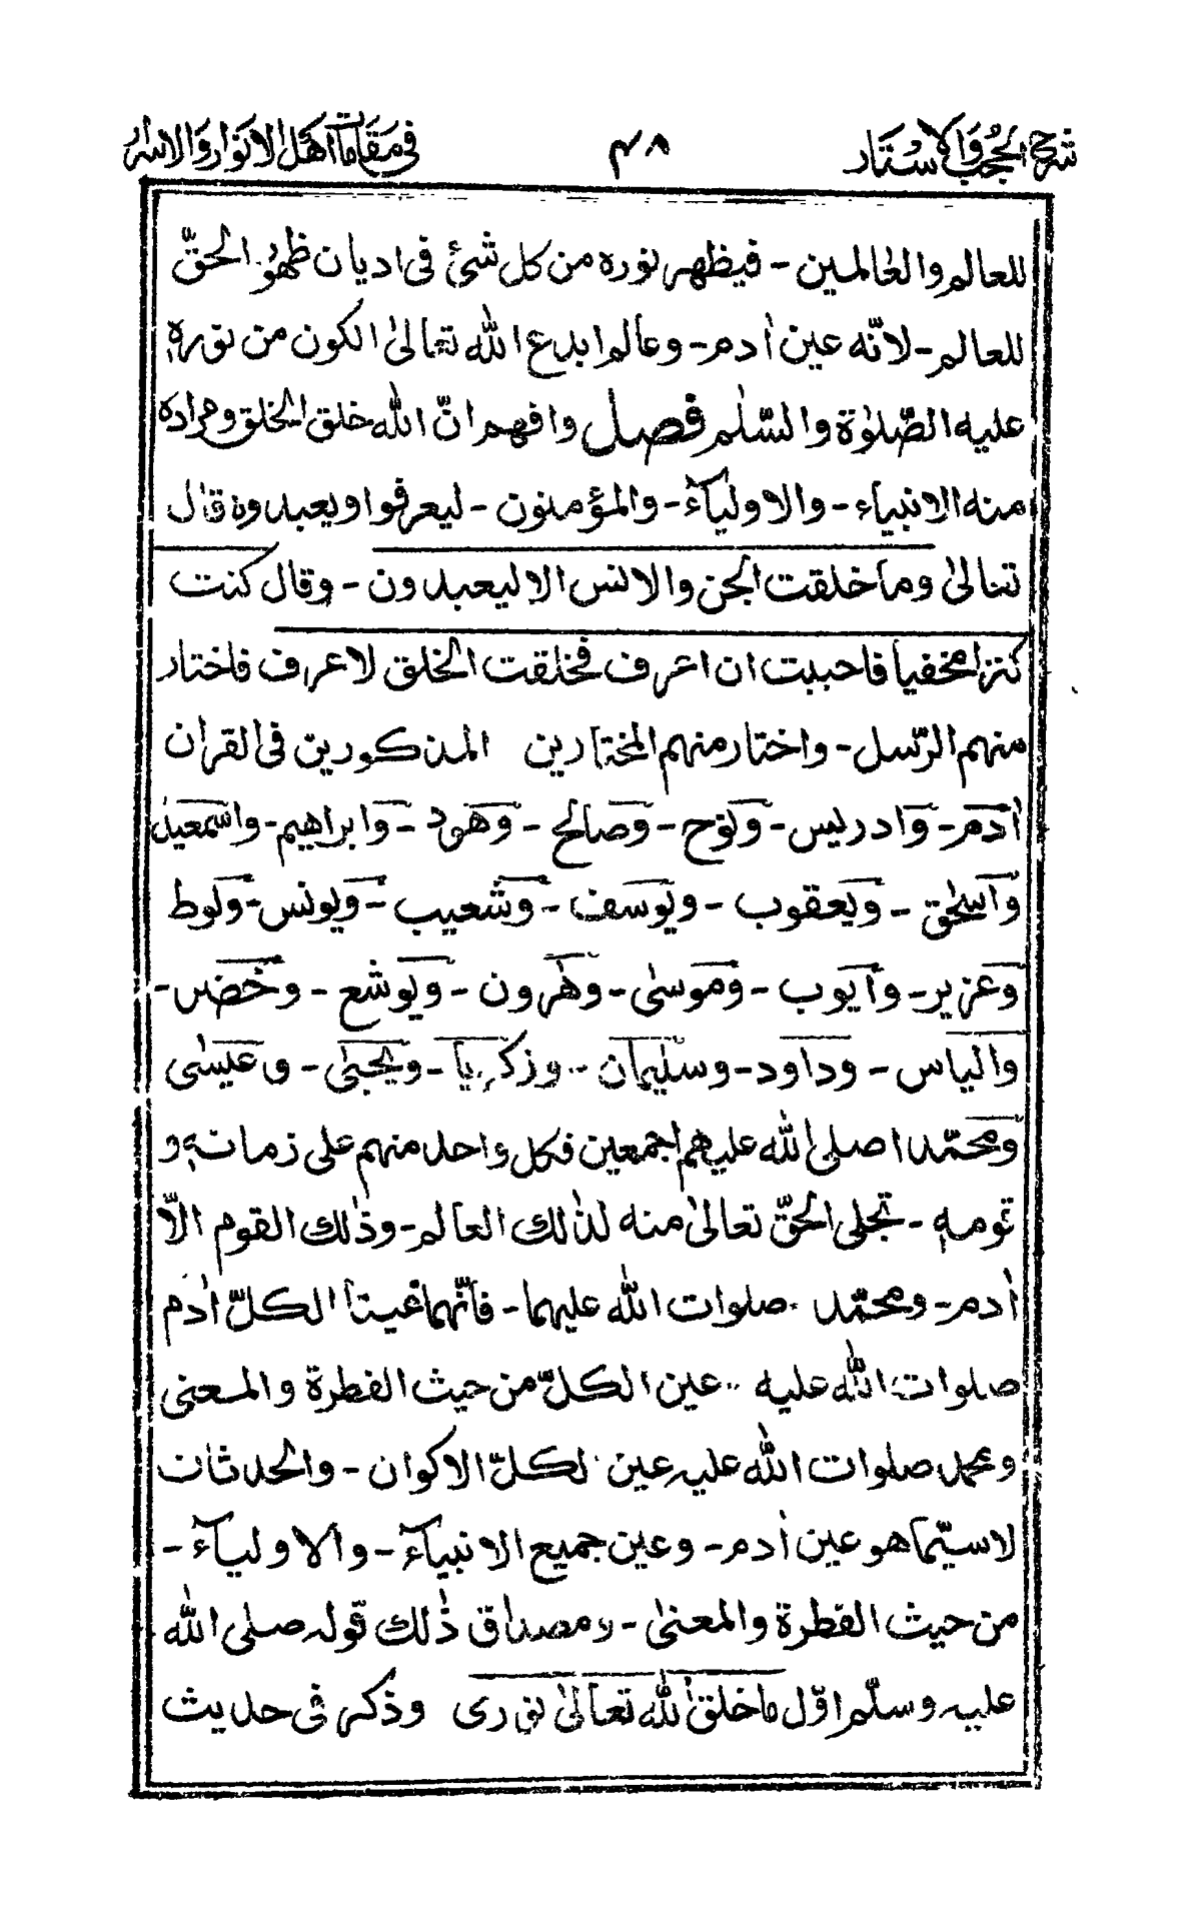 شرح الحجب والاستار ۴۸ فی مقامات اهل الانوار والاسرار
للعالم والعٰالمین - فیظهر نوره من کل شئ فی ادیان ظهُو الحقّ
للعالم - لانّه عین اٰدم - وعالم ابدع الله تعالیٰ الکون من نوره
علیه الصّلوٰة والسّلٰم فصل وافهم انّ الله خلق الخلق ومراده
منه الانبیاء - والاولیآء - والمؤمنون - لیعرفوا ویعبدوه قال
تعالیٰ وما خلقت الجن والانس الا لیعبدون - وقال کنت
کنزا مخفیا فاحببت ان اعرف فخلقت الخلق لاعرف فاختار
منهم الرّسل - واختار منهم المختارین المذکورین فی القراٰن
اٰدم - وادریس - ونوح - وصالح - وهود - وابراهیم - واسمٰعیل
واسحٰق - ویعقوب - ویوسف - وشعیب - ویونس - ولوط
وعزیر - وایوب - وموسیٰ - وهٰرون - ویوشع - وخضر -
والیاس - وداود - وسلیمان - وزکریا - ویحییٰ - وعیسٰی
ومحمّدا صلی الله علیهم اجمعین فکل واحد منهم علی زمانهٖ و
قومهٖ - تجلی الحقّ تعالیٰ منه لذٰلك العالم - وذٰلك القوم الّا
اٰدم - ومحمّد صلوات الله علیهما - فانّهما عینا الکلّ اٰدم
صلوات الله علیه عین الکلّ من حیث الفطرة والمعنی
ومحمد صلوات الله علیه عین لکلّ الاکوان - والحدثان
لاسیّما هو عین اٰدم - وعین جمیع الانبیآء - والاولیآء -
من حیث الفطرة والمعنیٰ - ومصداق ذٰلك قوله صلی الله
علیه وسلّم اوّل ما خلق الله تعالیٰ نوری وذکر فی حدیث